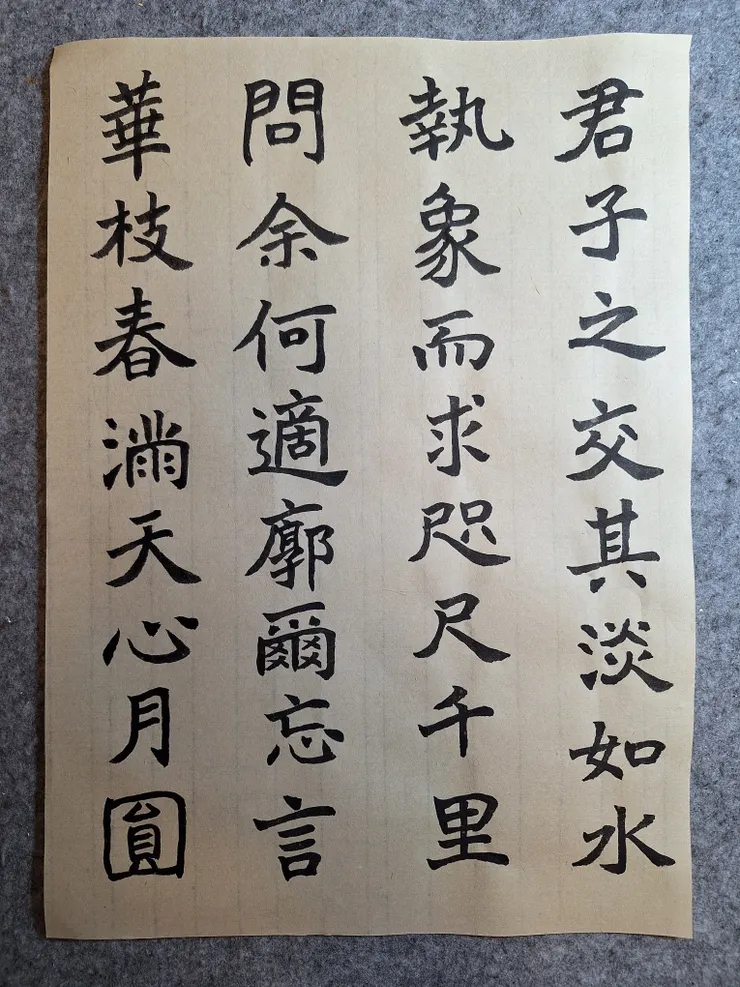 君子之交其淡如水
執象而求咫尺千里
問余何適廓爾忘言
華枝春滿天心月圓